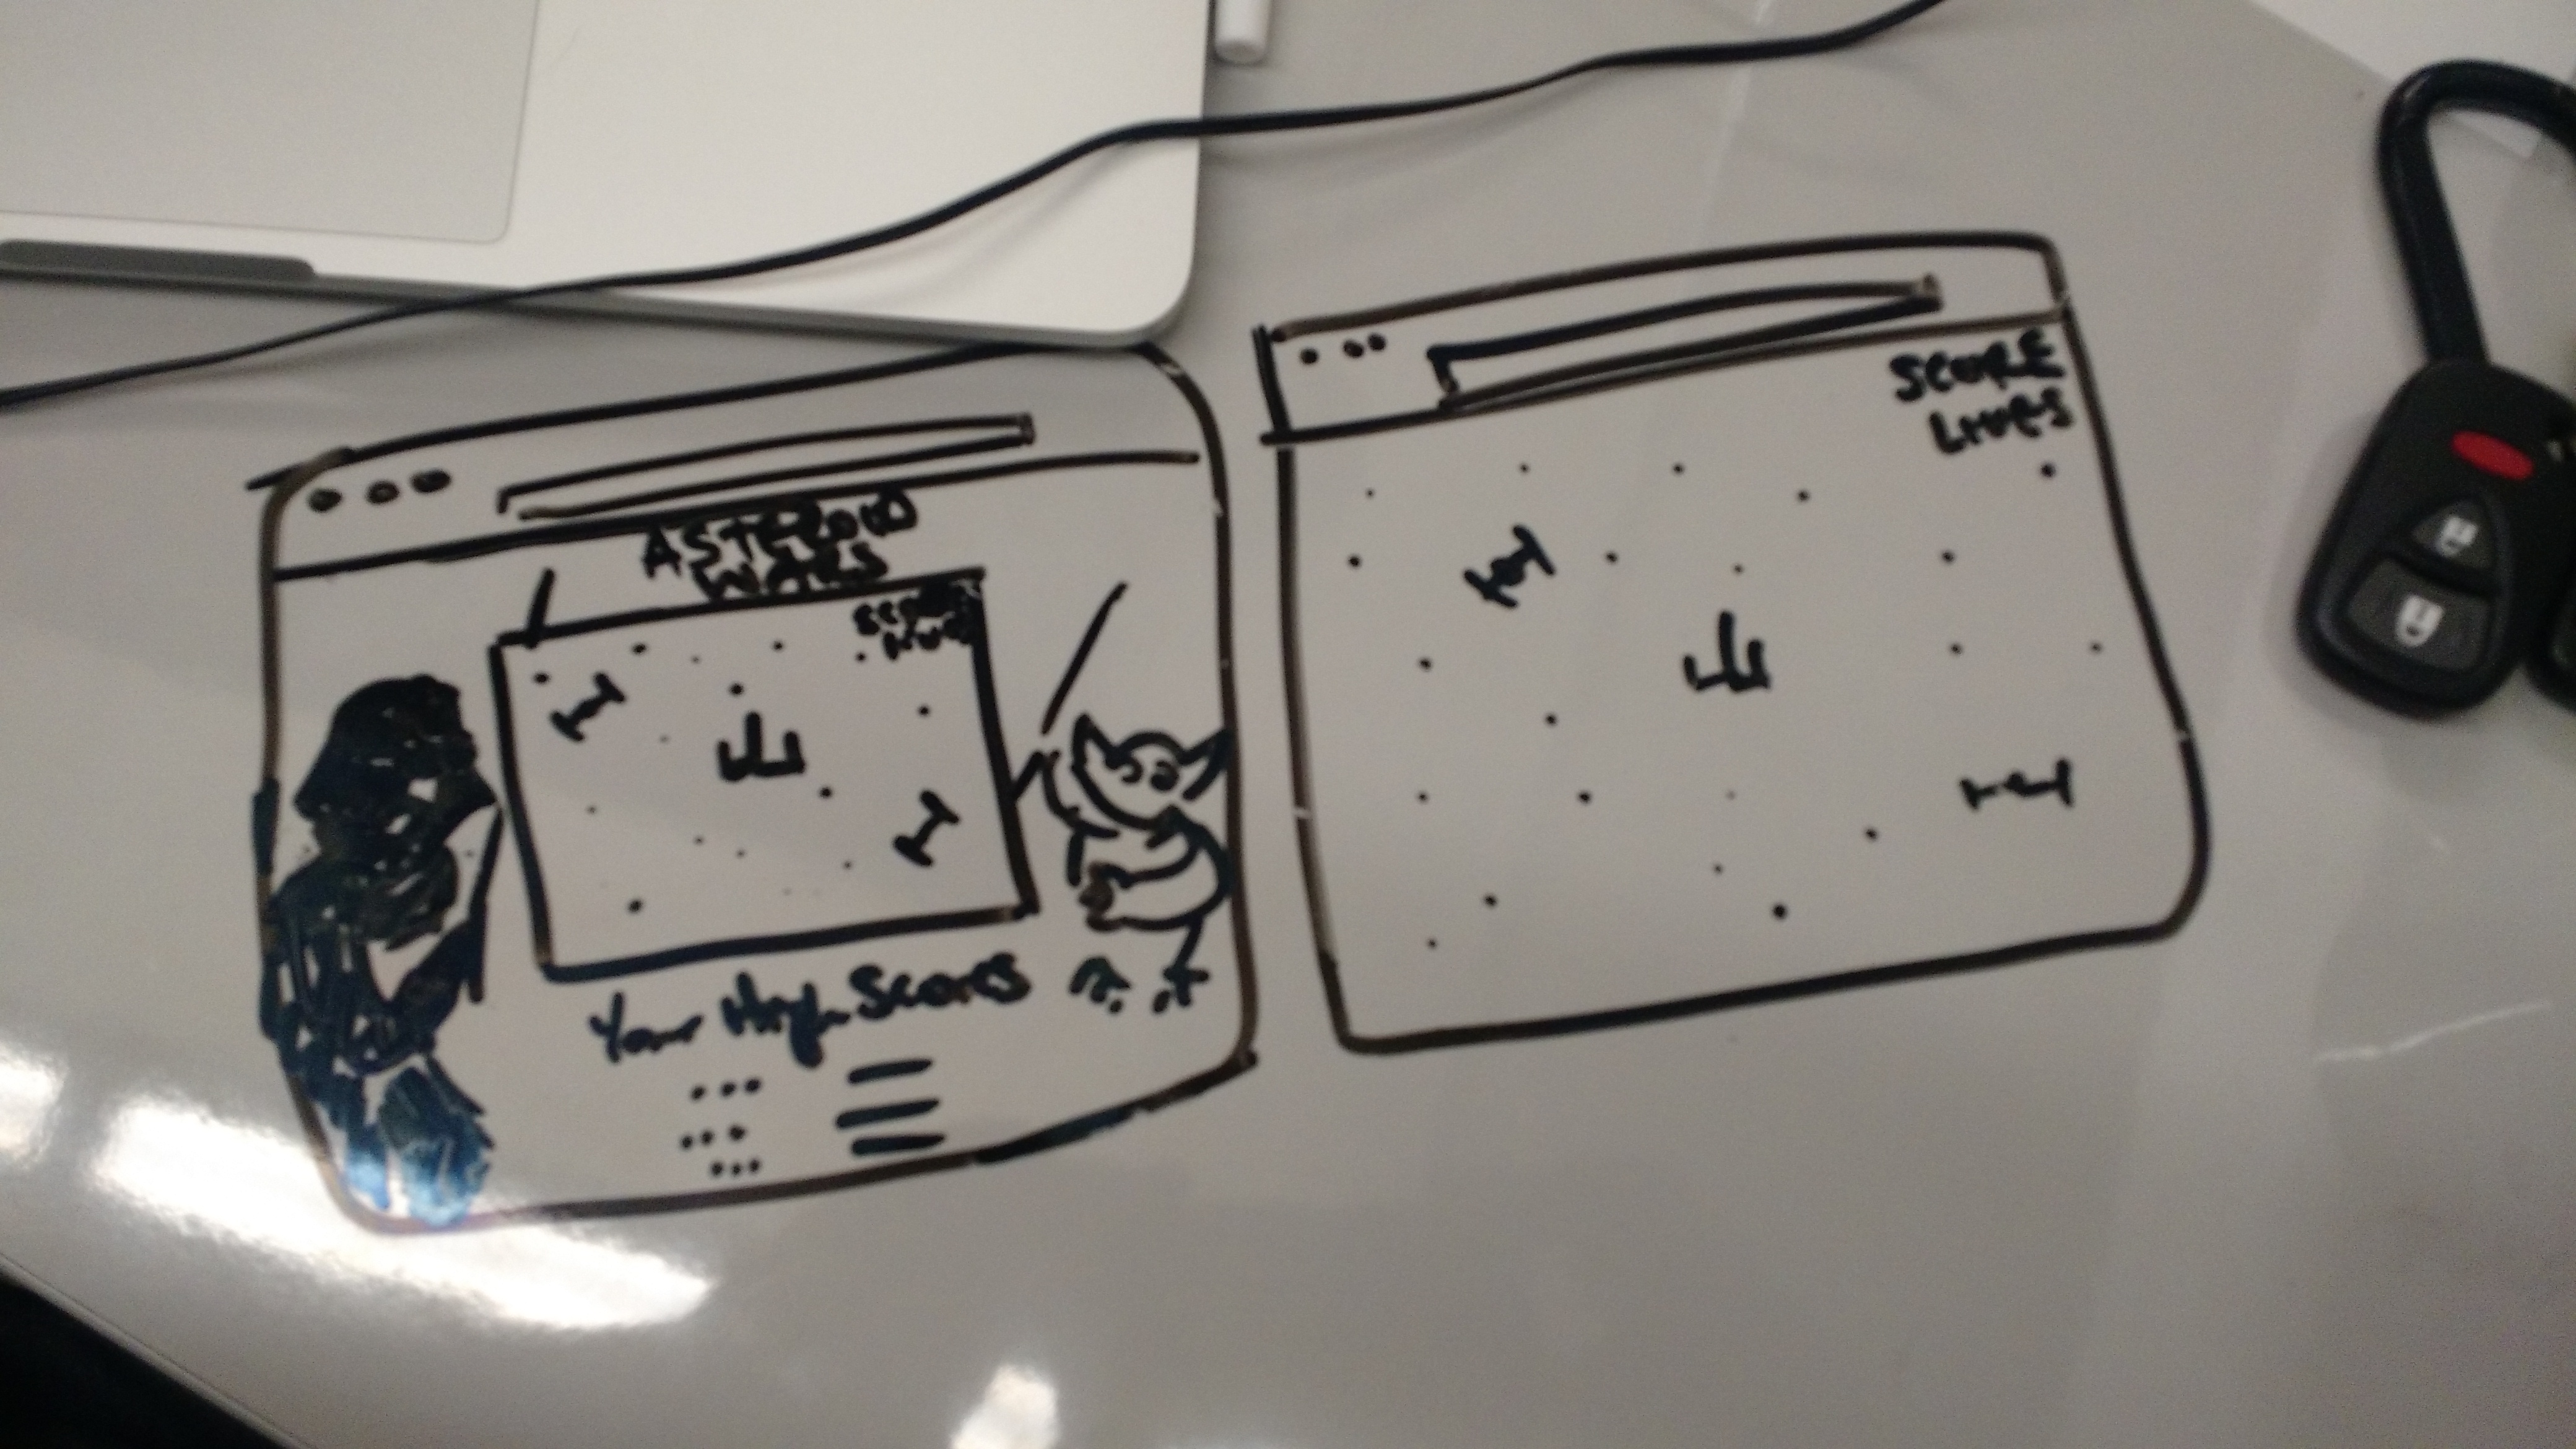 ASTEROID
WARS
SCORE
LIVES
Your High Scores
SCORE
LIVES